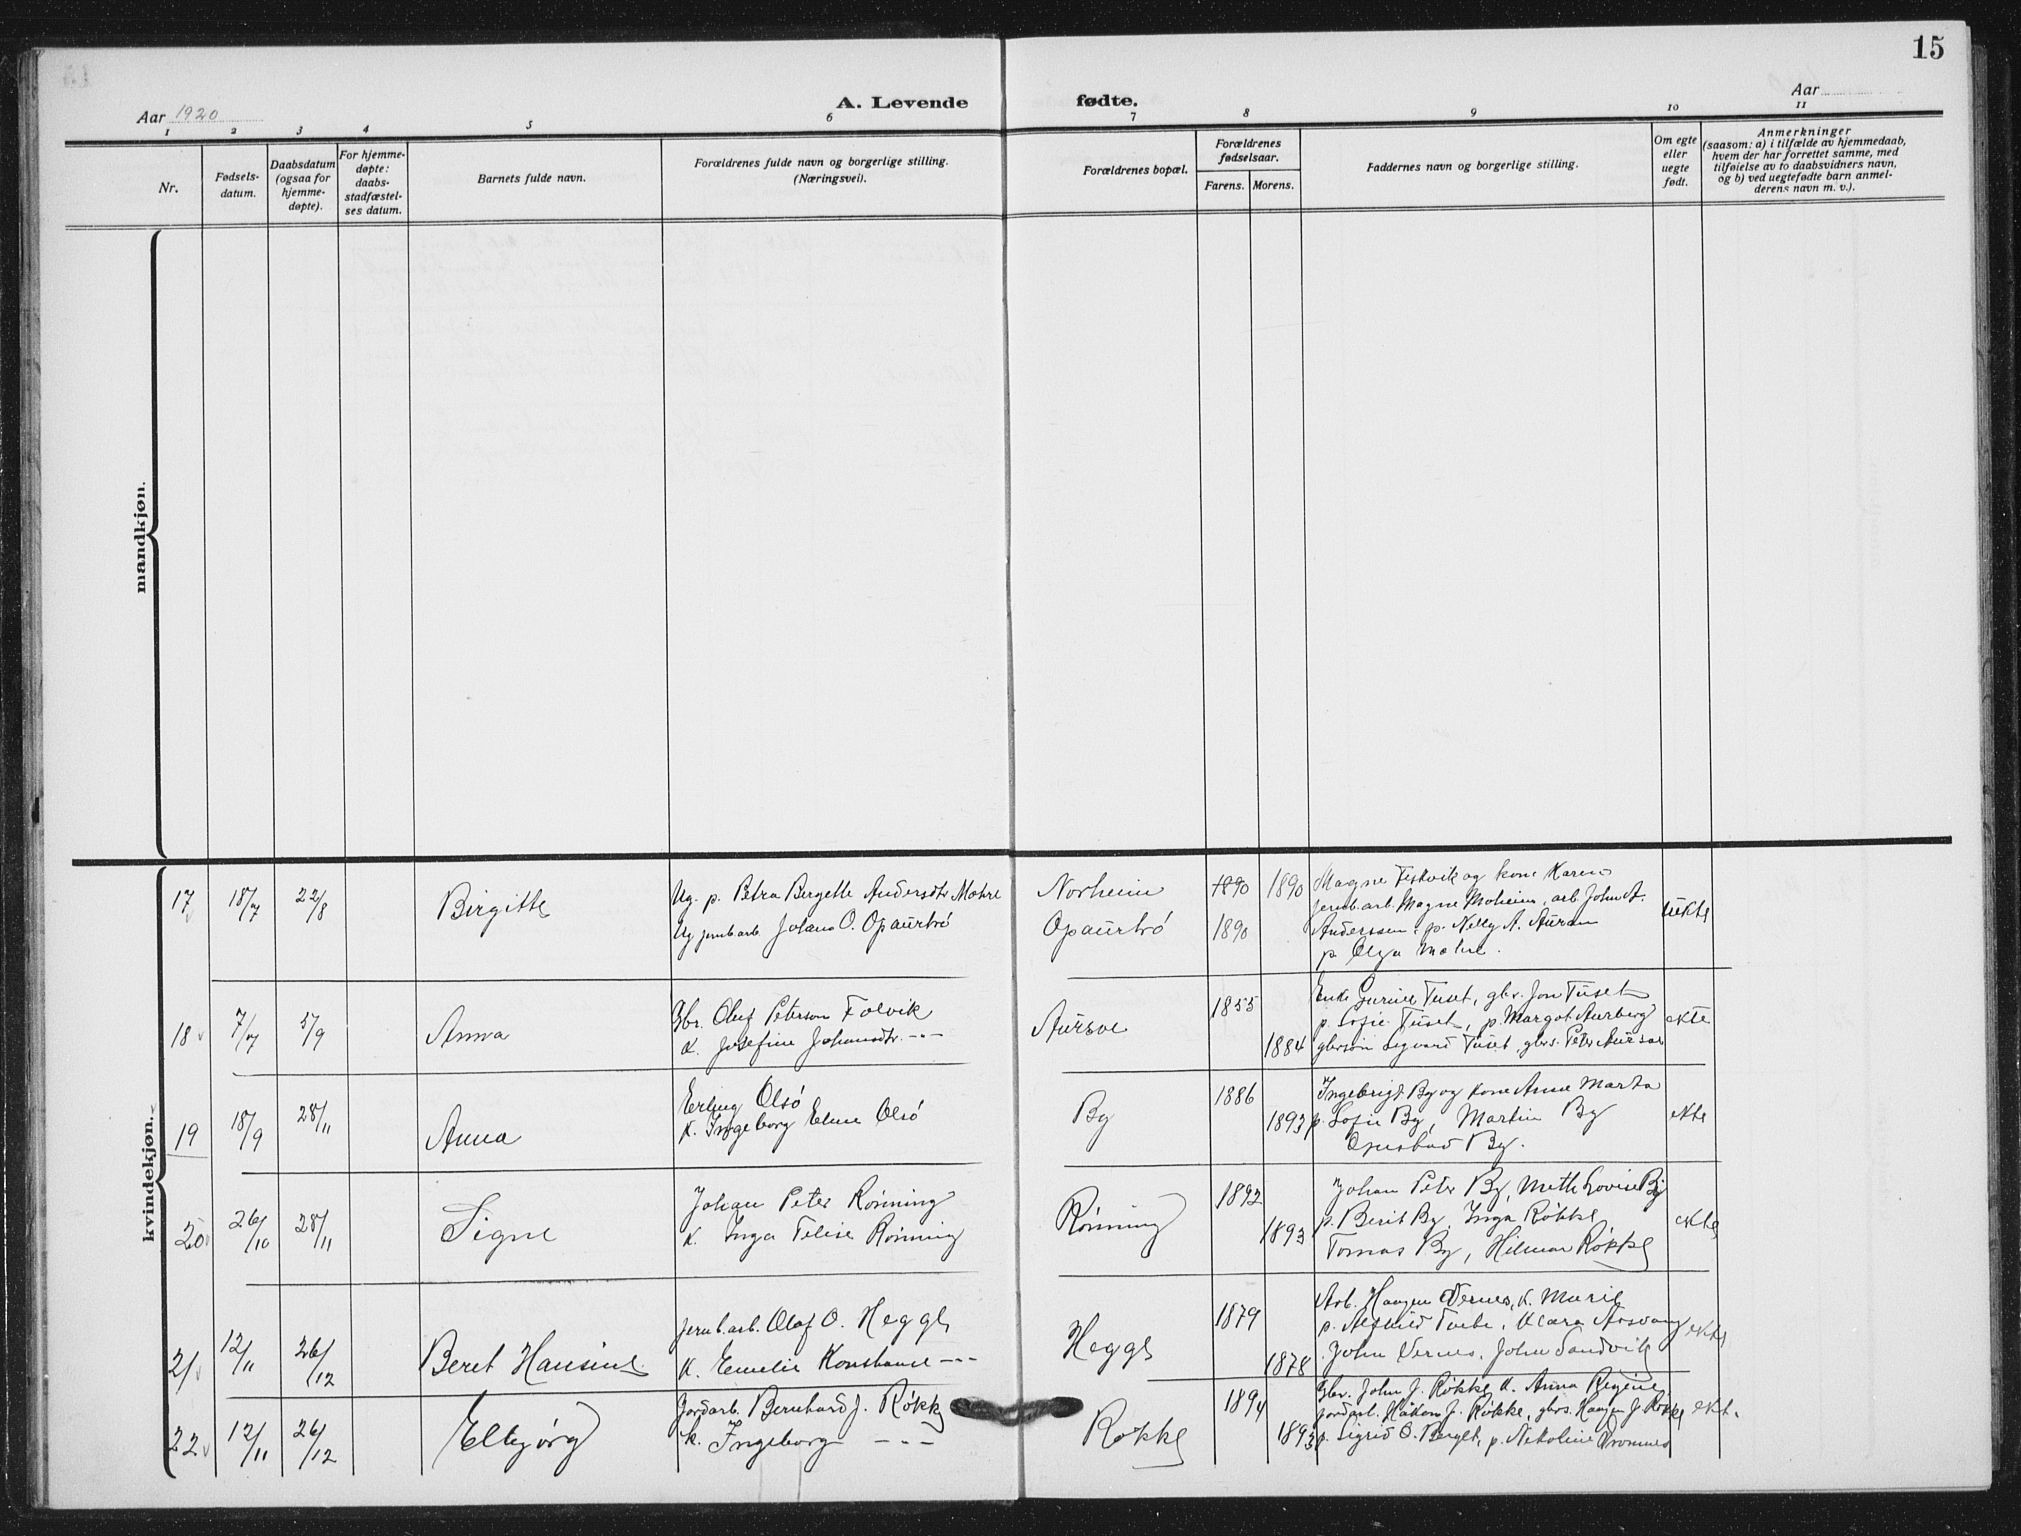 15
Aar 1920
A. Levende fødte.
Aar
1 2 3 4 5 6 7 8 9 10 11
Nr.
Fødsels-
datum.
Daabsdatum
(ogsaa for
hjemme-
døpte).
For hjemme-
døpte:
daabs-
stadfæstel-
ses datum.
Barnets fulde navn.
Forældrenes fulde navn og borgerlige stilling.
(Næringsvei).
Forældrenes bopæl.
Forældrenes
fødselsaar.
Farens. Morens.
Faddernes navn og borgerlige stilling.
Om egte
eller
uegte
født.
Anmerkninger
(saasom: a) i tilfælde av hjemmedaab,
hvem der har forrettet samme, med
tilføielse av to daabsvidners navn,
og b) ved uegtefødte barn anmel-
derens navn m. v.).
mandkjøn.
kvindekjøn.
17 18/7 22/8 Birgitte
Ug. p. Petra Bergette Andersdtr Mohre
Ug jernb.arb. Johans O. Opaurbrö
Norheim
Opaurbrö
1890 1890
1890
Magne Fiskvik og kone Karen
jernb.arb. Magne Moheim, arb. John A.
Anderssen, p. Nelly A. Auran
p. Olga Mohre.
uekte
18 7/7 5/9 Anna
Gbr. Oluf Peterson Folvik
K. Josefine Johansdtr. ---
Aursve
1855
1884
Enke Gurine Tuset, gbr. Jon Tuset
p. Sofie Tuset, p. Margot Aurberg
gbrsön Sigvard Tuset, gbrs. Peter Aursve
ekte
19 18/9 28/11 Anna
Erling Olsö
K. Ingeborg Eline Olsö
By
1886
1893
Ingebrigt By og kone Anne Marta
p. Sofie By, Martin By
By.
ekte
20 26/10 28/11 Signe
Johan Peter Rönning
K. Inga Rönning
Rönning
1892
1893
Johan Peter By, Mette Lovise By
p. Berit By, Inga Røkke
Tomas By, Hilmar Røkke
ekte
21 12/11 26/12 Beret Hansine
jernb.arb. Olaf O. Hegge
K. Emelie Konstanse ---
Hegge
1879
1878
Arb. Haagen Vernes, K. Marie
p. Alfhild Tuebe, Klara Aasvang
John Vernes, John Sandvik
ekte
22 12/11 26/12 Elbjørg
Jordarb. Bernhard J. Røkke
K. Ingeborg ---
Røkke
1894
1893
Gbr. John J. Røkke K. Anna Regine
jordarb. Håkon J. Røkke, gbrs. Haagen J. Røkke
p. Sigrid O. Berget, p. Nikoline Kromnes
ekt.